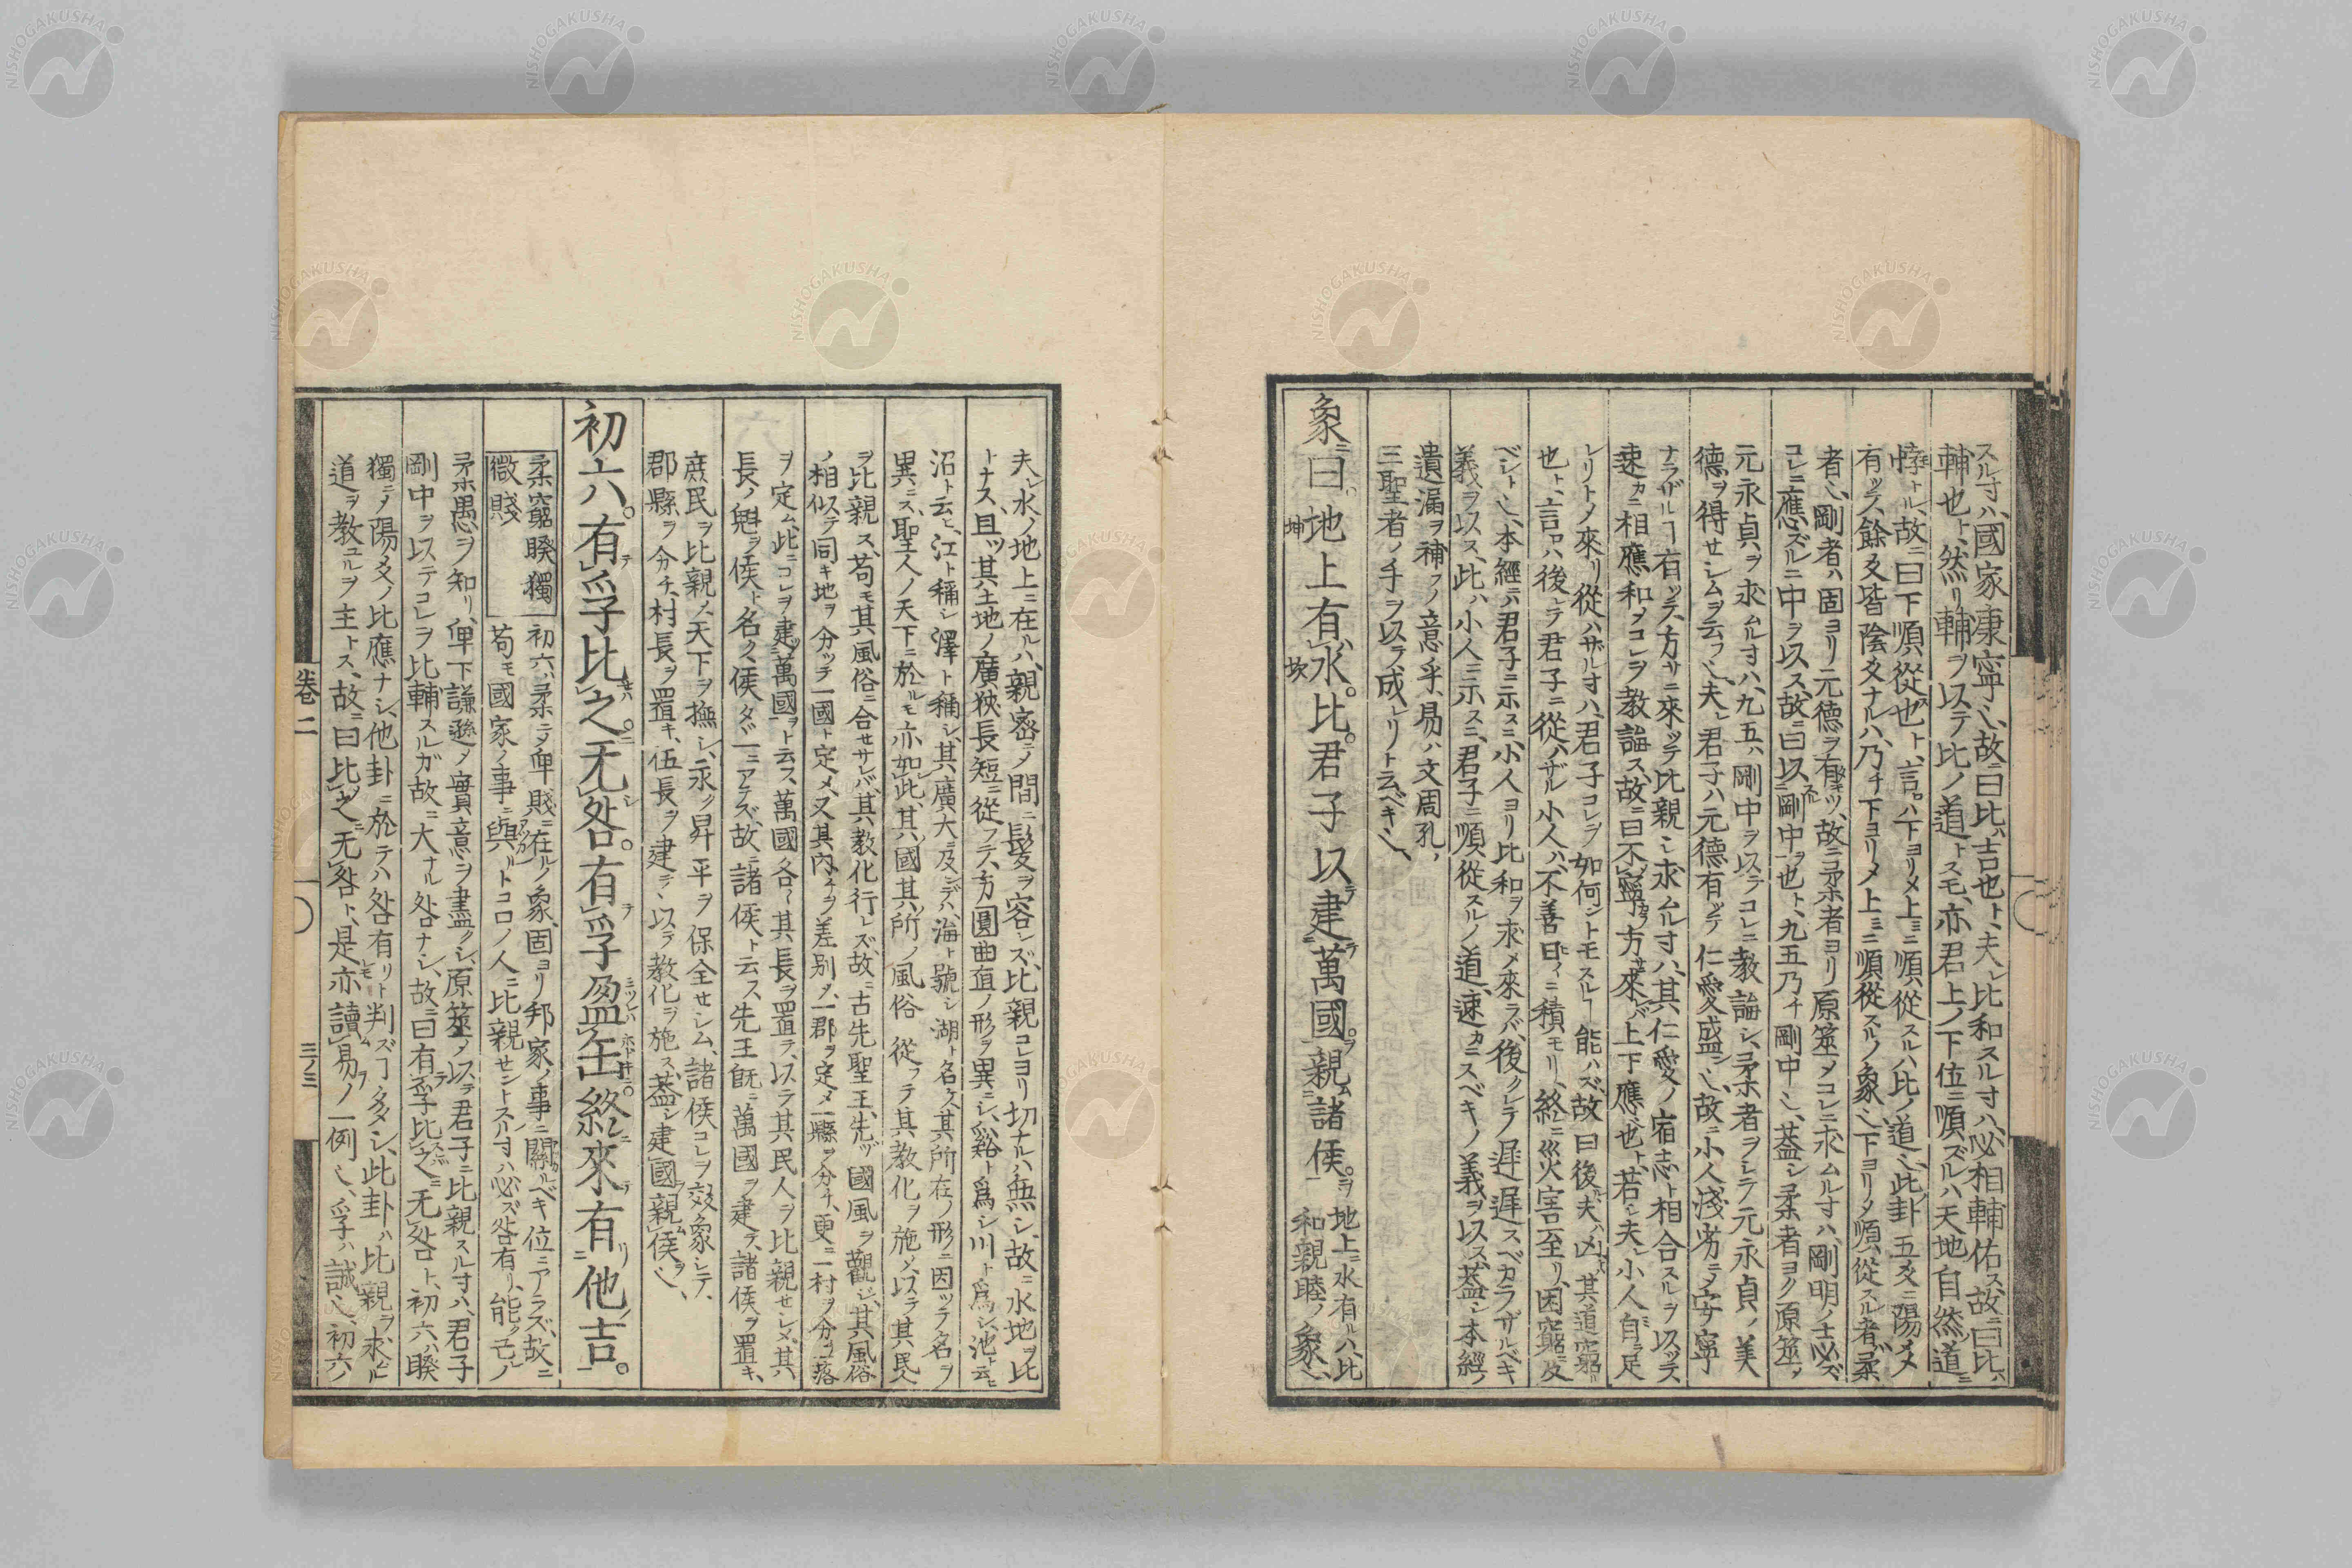 スル寸ハ、國家康寧〻、故ニ曰比ハ吉也ト、夫レ比和スル寸ハ、必相輔佑ス、故ニ曰比ハ
輔也ト、然リ輔ヲ以テ比ノ道トスモ、亦君上ノ下位ニ順ズルハ天地自然ノ道ニ
悖トル、故ニ曰下順從也ト、言ロハ下ヨリメ上ニ順從スルハ比ノ道〻、此ノ卦五爻ニ陽メ
有ッテ、餘爻皆陰爻ナルハ、乃チ下ヨリメ上ニ順從スルノ象〻、下ヨリメ順從スル者ハ柔
者〻、剛者ハ固ヨリ元德ヲ有ツ、故ニ柔者ヨリ原筮メコレニ求ムル寸ハ、剛明ノ士必ズ
コレニ應ズルニ中ヲ以ス、故ニ曰以剛中ヲ也ト、九五乃チ剛中〻、蓋シ柔者ヨク原筮ノ
元永貞ヲ求ムル寸ハ、九五ハ剛中ヲ以テコレニ教諭シ、柔者ヲシテ元永貞ノ美
德ヲ得セシムヲ云フ〻、夫レ君子ハ元德有ッテ仁愛盛ン〻、故ニ小人淺劣ニメ安寧
ナラザルヿ有ッテ、方サニ來ッテ比親シ求ムル寸ハ、其仁愛ノ宿志ト相合スルヲ以ッテ、
速カニ相應和メコレヲ教諭ス、故ニ曰不寧方來ルハ上下應也ト、若シ夫レ小人自ラ足
レリトメ來リ從ハザル寸ハ、君子コレヲ如何ントモスルヿ能ハズ、故曰後夫ハ凶其道窮
也ト、言ロハ後レテ君子ニ從ハザル小人ハ、不善日〻ニ積モリ、終ニ災害至リ、困窮ニ及
ベシト〻、本經ニハ君子ニ示スニ、小人ヨリ比和ヲ求メ來ラバ、後クレテ遲遲スベカラザルベキ
義ヲ以ス、此ハ小人ニ示スニ、君子ニ順從スルノ道、速カニスベキノ義ヲ以ス、蓋シ本經ノ
遺漏ヲ補フノ意乎、易ハ文周孔ノ
三聖者ノ手ヲ以ラ成レリト云ベキ〻、
象ニ曰地上有水。比。君子以建萬國。親諸侯。
坤
坎
地上ニ水有ルハ、比
和親睦ノ象〻、
夫レ水ノ地上ニ在ルハ、親密ニメ間ニ髮ヲ容レズ、比親コレヨリ切ナルハ無シ、故ニ水地ヲ比
トナス、且ツ其土地ノ廣狹長短ニ從フテ、方圓曲直ノ形ヲ異ニシ、谿ト爲シ川ト爲シ池ト云ヒ
沼ト云ヒ、江ト稱シ澤ト稱シ、其廣大ニ及ンデハ、海ト號シ湖ト名ク、其所在ノ形ニ因ッテ名ヲ
異ニス、聖人ノ天下ニ於ルモ亦如此、其國其所ノ風俗ニ從フテ其教化ヲ施メ、以テ其民
ヲ比親ス、苟モ其風俗ニ合セサレバ、其教化行レズ、故ニ古先聖王、先ヅ國風ヲ觀ジ、其風俗
ノ相似テ同キ地ヲ分ッテ一國ト定メ、又其内チヲ差別メ、一郡ヲ定メ一縣ヲ分チ、更ニ一村ヲ分ヶ一落
ヲ定ム、此ニコレヲ建萬國ヲト云ス、萬國各〻其長ヲ置テ、以テ其民人ヲ比親セシメ、其
長ノ魁ヲ侯ト名ク、侯タゞ一ニアラズ、故ニ諸侯ト云ス、先王既ニ萬國ヲ建テ、諸侯ヲ置キ、
庶民ヲ比親メ天下ヲ撫シ、永ク昇平ヲ保全セシム、諸侯コレヲ效象シテ、
郡縣ヲ分チ、村長ヲ置キ、伍長ヲ建テ、以テ教化ヲ施ス、蓋シ建國親侯ヲ〻、
初六。有孚比之。无咎。有孚盈缶。終來有他吉。
柔窮睽獨
微賤
初六ハ柔ニテ卑賤ニ在ルノ象、固ヨリ邦家ノ事ニ關ルベキ位ニアラズ、故ニ
苟モ國家ノ事ニ與ルトコロノ人ニ比親セントスル寸ハ必ズ咎有リ、能ク己レノ
柔愚ヲ知リ、卑下謙遜メ實意ヲ盡クシ、原筮メ以テ君子ニ比親スル寸ハ、君子
剛中ヲ以テコレヲ比輔スルガ故ニ大ナル咎ナシ、故ニ曰有孚比之无咎ト、初六ハ睽
獨ニメ陽爻ノ比應ナシ、他卦ニ於テハ咎有リト判ズルヿ多シ、此卦ハ比親ヲ求ムル
道ヲ教ユルヲ主トス、故ニ曰比之无咎ト、是亦讀易ノ一例〻、孚ハ誠〻、初六ハ
卷二
三ノ三